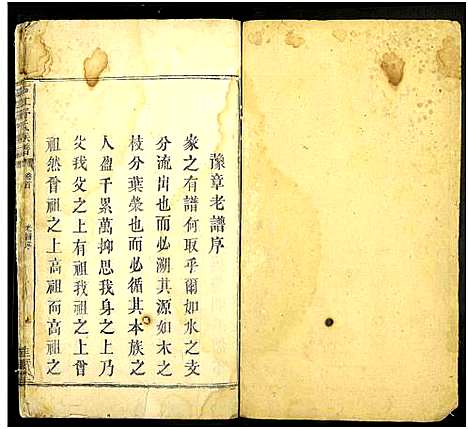 豫章老譜序
家之有譜何取乎爾如水之支
分流出也而必溯其源如木之
枝分葉槃也而必循其本族之
人盈千累萬抑思我身之上乃
父我父之上有祖我祖之上曾
祖然曾祖之上高祖而高祖之
氏族譜
卷首
老譜序